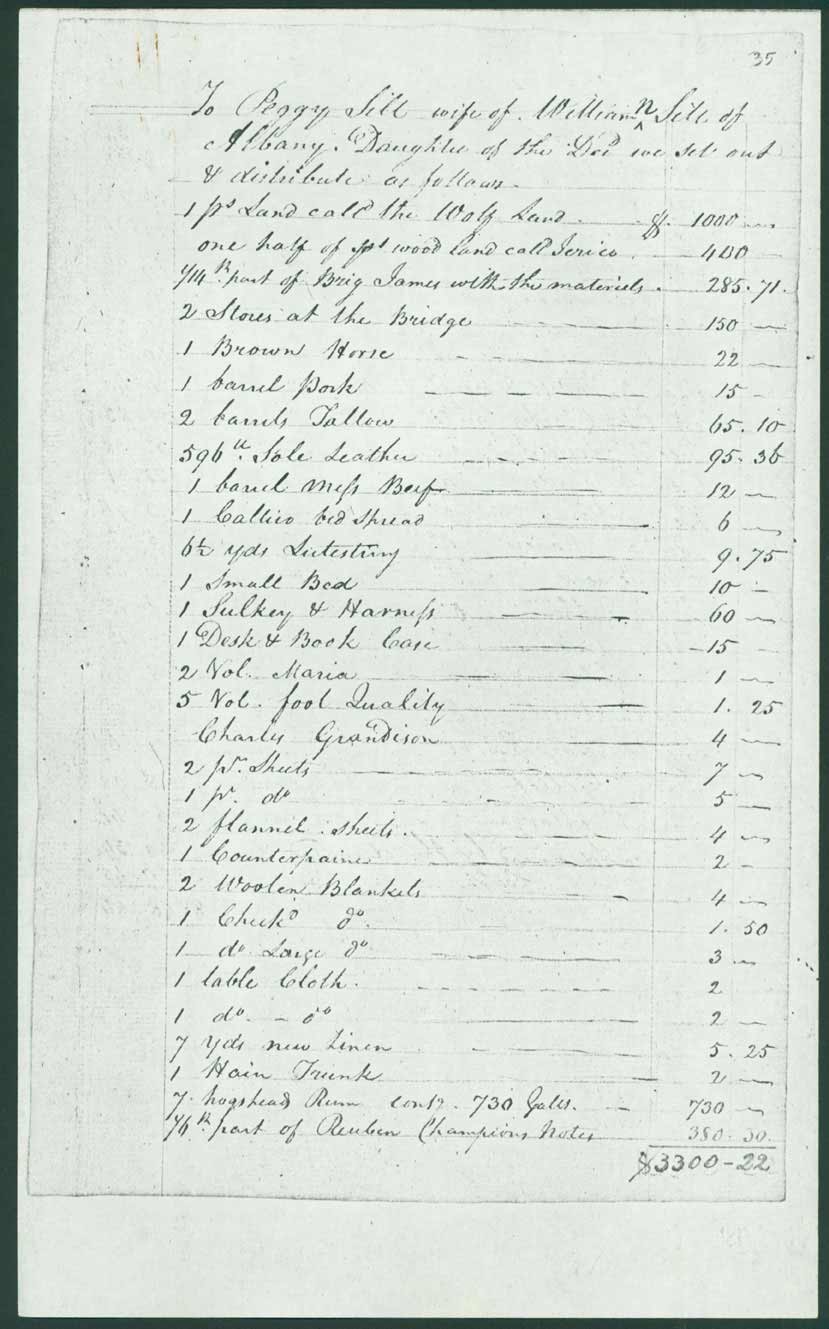 35
To Peggy Sill wife of William N Sill of
Albany. Daughter of the Decd we set out
& distribute as follows -
1 ps Land calld the Wolf Land - $ 1000 -
one half of ps wood land calld Jerico - 400
1/14th part of Brig James with the materiels - 285.71.
2 Stores at the Bridge 150 -
1 Brown Horse 22 -
1 barrel Pork 15 -
2 barrels Tallow 65.10
596 lb. Sole Leather 95.36
1 barrel Mess Beef 12 -
1 Callico bed Spread 6 -
6 1/2 yds Lutestring 9.75
1 Small Bed 10 -
1 Sulkey & Harness 60 -
1 Desk & Book Case 15 -
2 Vol. Maria 1 -
5 Vol. fool Quality 1.25
Charles Grandison 4 -
2 pr. Sheets 7 -
1 pr. do 5 -
2 flannel sheets. 4 -
1 Counterpaine 2 -
2 Woolen Blankets 4 -
1 Checkd do. 1.50
1 do Large do 3 -
1 table Cloth. 2
1 do. - do 2 -
7 yds new Linen 5.25
1 Hair Trunk 2 -
7 hogsheads Rum contg. 730 Galls. - 730 -
1/6th part of Reuben Champions Notes 380.30.
$3300-22